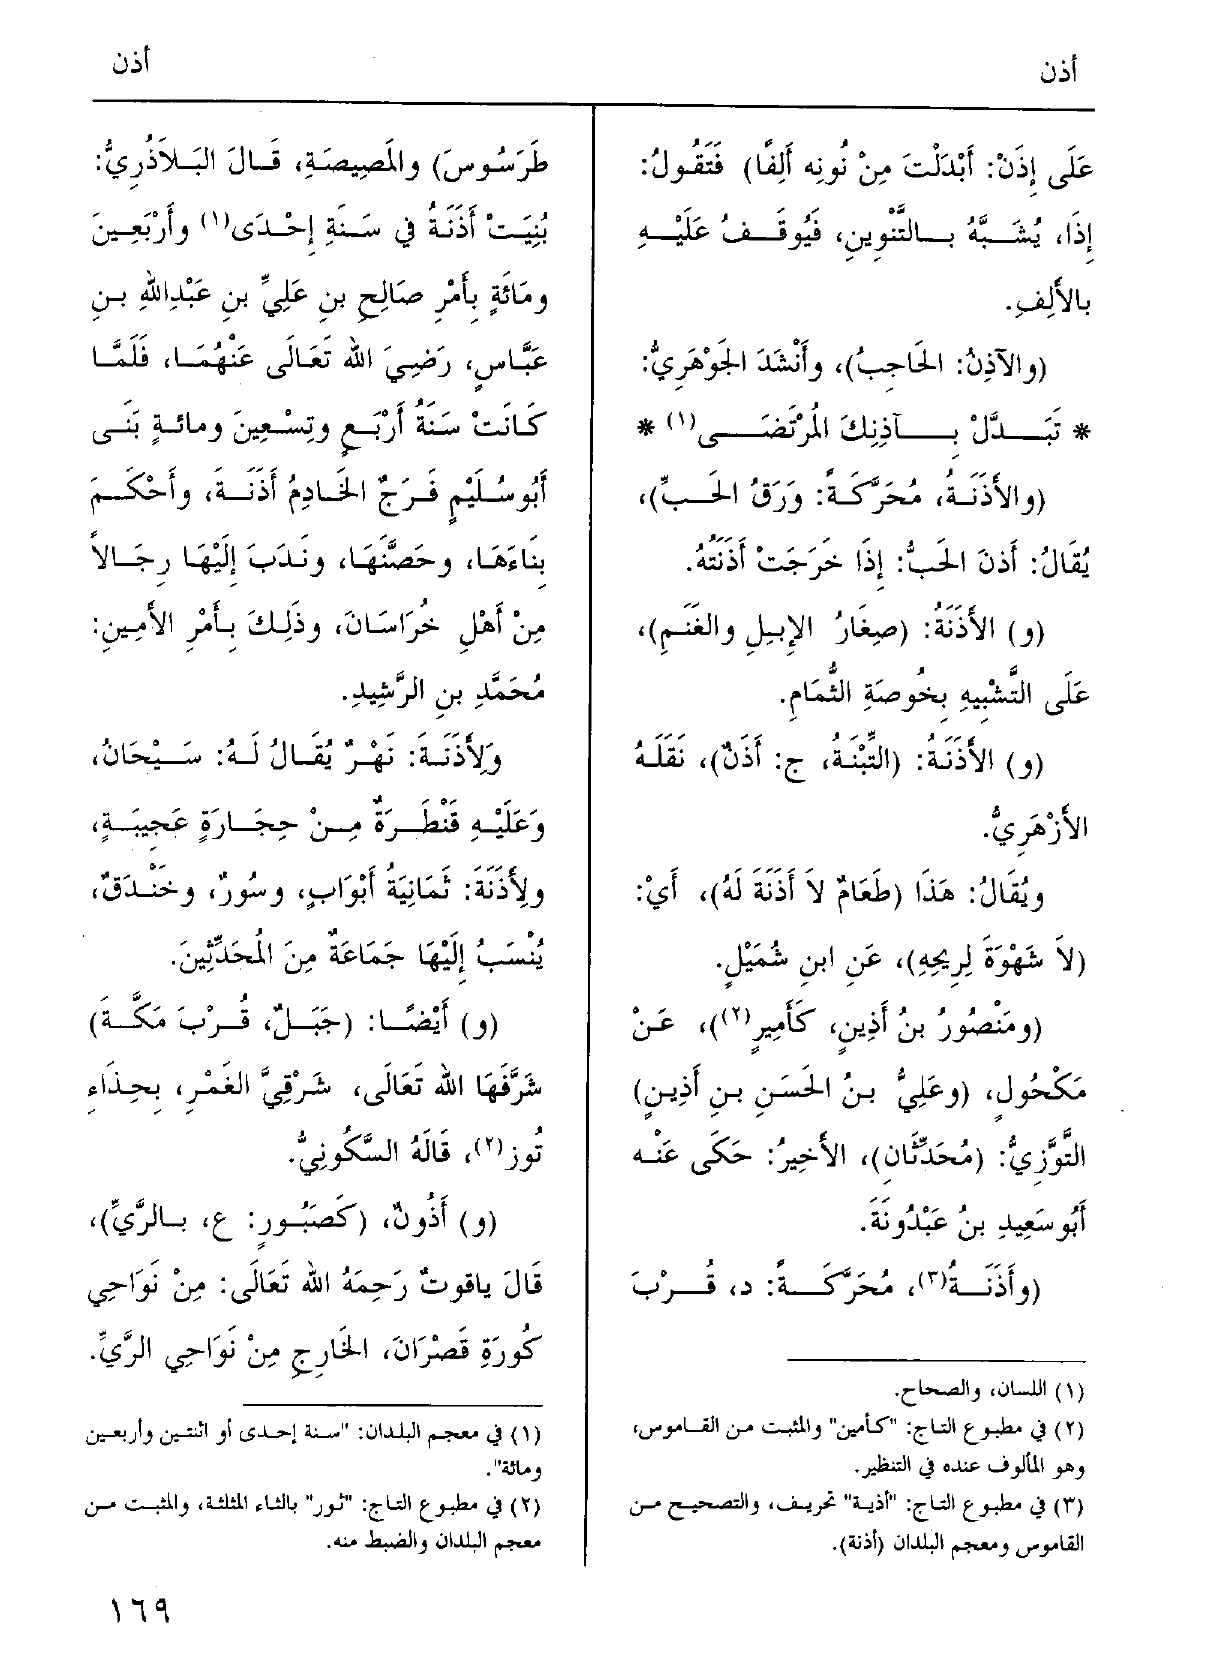 أذن
أذن
عَلَى إِذَنْ: أَبْدَلْتَ مِنْ نُونِه أَلِفًا) فَتَقُولُ:
إِذَا، يُشَبَّهُ بِالتَّنْوِينِ، فَيُوقَفُ عَلَيْهِ
بالأَلِفِ.
(والآذِنُ: الحَاجِبُ)، وأَنْشَدَ الجَوْهَرِيُّ:
* تَبَدَّلْ بِآذِنِكَ المُرْتَضَى(١) *
(والأَذَنَةُ، مُحَرَّكَةً: وَرَقُ الحَبِّ)،
يُقَالُ: أَذنَ الحَبُّ: إِذَا خَرَجَتْ أَذَنَتُهُ.
(و) الأَذَنَةُ: (صِغَارُ الإِبِلِ والغَنَمِ)،
عَلَى التَّشْبِيهِ بِخُوصَةِ الثُّمَامِ.
(و) الأَذَنَةُ: (التِّبْنَةُ، ج: أَذَنٌ)، نَقَلَهُ
الأَزْهَرِيُّ.
ويُقَالُ: هَذَا (طَعَامٌ لاَ أَذَنَةَ لَهُ)، أَيْ:
(لاَ شَهْوَةَ لِرِيحِهِ)، عَنِ ابنِ شُمَيْلٍ.
(ومَنْصُورُ بنُ أَذِينٍ، كَأَمِيرٍ(٢))، عَنْ
مَكْحُولٍ، (وعَلِيُّ بنُ الحَسَنِ بنِ أَذِينٍ)
التَّوَّزِيُّ: (مُحَدِّثَانِ)، الأَخِيرُ: حَكَى عَنْه
أَبُوسَعِيدِ بنُ عَبْدُونَةَ.
(وأَذَنَةُ(٣)، مُحَرَّكَةً: د، قُرْبَ
(١) اللسان، والصحاح.
(٢) في مطبوع التاج: "كأمين" والمثبت من القاموس،
وهو المألوف عنده في التنظير.
(٣) في مطبوع التاج: "أذية" تحريف، والتصحيح من
القاموس ومعجم البلدان (أذنة).
طَرَسُوسَ) والمَصِيصَةِ، قَالَ البَلاَذُرِيُّ:
بُنِيَتْ أَذَنَةُ في سَنَةِ إِحْدَى(١) وأَرْبَعِينَ
ومَائَةٍ بِأَمْرِ صَالِحِ بنِ عَلِيِّ بنِ عَبْدِاللهِ بنِ
عَبَّاسٍ، رَضِيَ الله تَعَالَى عَنْهُمَا، فَلَمَّا
كَانَتْ سَنَةُ أَرْبَعٍ وتِسْعِينَ ومائةٍ بَنَى
أَبُوسُلَيْمٍ فَرَجٌ الخَادِمُ أَذَنَةَ، وأَحْكَمَ
بِنَاءَهَا، وحَصَّنَهَا، ونَدَبَ إِلَيْهَا رِجَالاً
مِنْ أَهْلِ خُرَاسَانَ، وذَلِكَ بِأَمْرِ الأَمِينِ:
مُحَمَّدِ بنِ الرَّشِيدِ.
وَلأَذَنَةَ: نَهْرٌ يُقَالُ لَهُ: سَيْحَانُ،
وَعَلَيْهِ قَنْطَرَةٌ مِنْ حِجَارَةٍ عَجِيبَةٍ،
ولأَذَنَةَ: ثَمَانِيَةُ أَبْوَابٍ، وسُورٌ، وخَنْدَقٌ،
يُنْسَبُ إِلَيْهَا جَمَاعَةٌ مِنَ المُحَدِّثِينَ.
(و) أَيْضًا: (جَبَلٌ، قُرْبَ مَكَّةَ)
شَرَّفَهَا الله تَعَالَى، شَرْقِيَّ الغَمْرِ، بِحِذَاءِ
تُوز(٢)، قَالَهُ السَّكُونِيُّ.
(و) أَذُونٌ، (كَصَبُورٍ: ع، بالرَّيِّ)،
قَالَ ياقوتٌ رَحِمَهُ الله تَعَالَى: مِنْ نَوَاحِي
كُورَةِ قَصْرَانَ، الخَارِجِ مِنْ نَوَاحِي الرَّيِّ.
(١) في معجم البلدان: "سنة إحدى أو اثنتين وأربعين
ومائة".
(٢) في مطبوع التاج: "ثور" بالثاء المثلثة، والمثبت من
معجم البلدان والضبط منه.
١٦٩